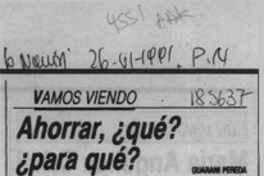 4551
26-VI-1991. P. 14
VAMOS VIENDO 185637
Ahorrar, ¿qué?
¿para qué?
GUARANI PEREDA